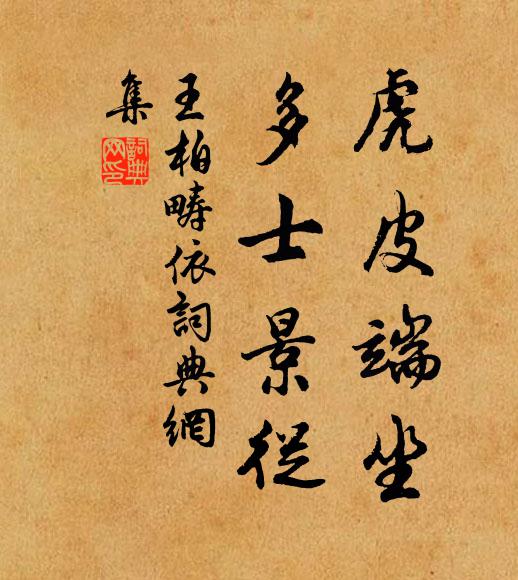 虎皮端坐
多士景從
王柏疇依詞典網
集
詞典網印